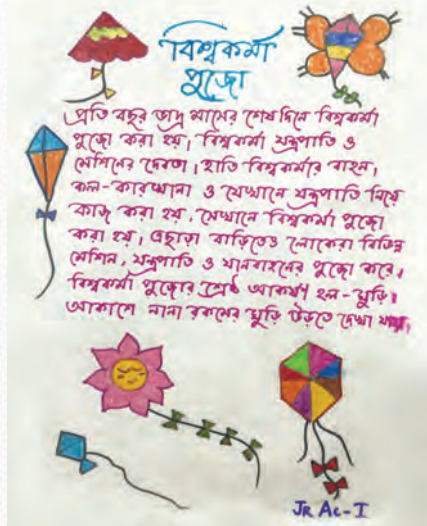 বিশ্বকর্মা
পুজো
প্রতি বছর ভাদ্র মাসের শেষ দিনে বিশ্বকর্মা
পুজো করা হয়। বিশ্বকর্মা যন্ত্রপাতি ও
মেশিনের দেবতা। হাতি বিশ্বকর্মার বাহন।
কল-কারখানা ও যেখানে যন্ত্রপাতি নিয়ে
কাজ করা হয়, সেখানে বিশ্বকর্মা পুজো
করা হয়। এছাড়া বাড়িতেও লোকেরা বিভিন্ন
মেশিন, যন্ত্রপাতি ও যানবাহনের পুজো করে।
বিশ্বকর্মা পুজোর শ্রেষ্ঠ আকর্ষণ হল- ঘুড়ি।
আকাশে নানা রকমের ঘুড়ি উড়তে দেখা যায়।
JR AC-I